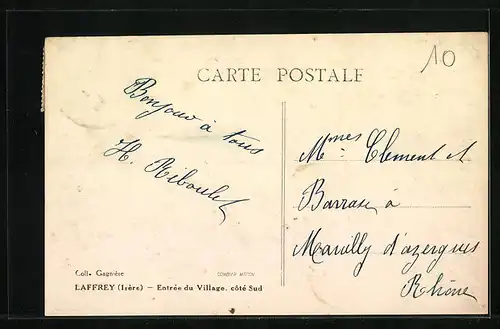 10
CARTE POSTALE
Bonjour à tous
H. Riboulet
Mmes Clement et
Barrase à
Marcilly d'azergues
Rhône
Coll. Gagnière
COMBIER MACON
LAFFREY (Isère) — Entrée du Village, côté Sud